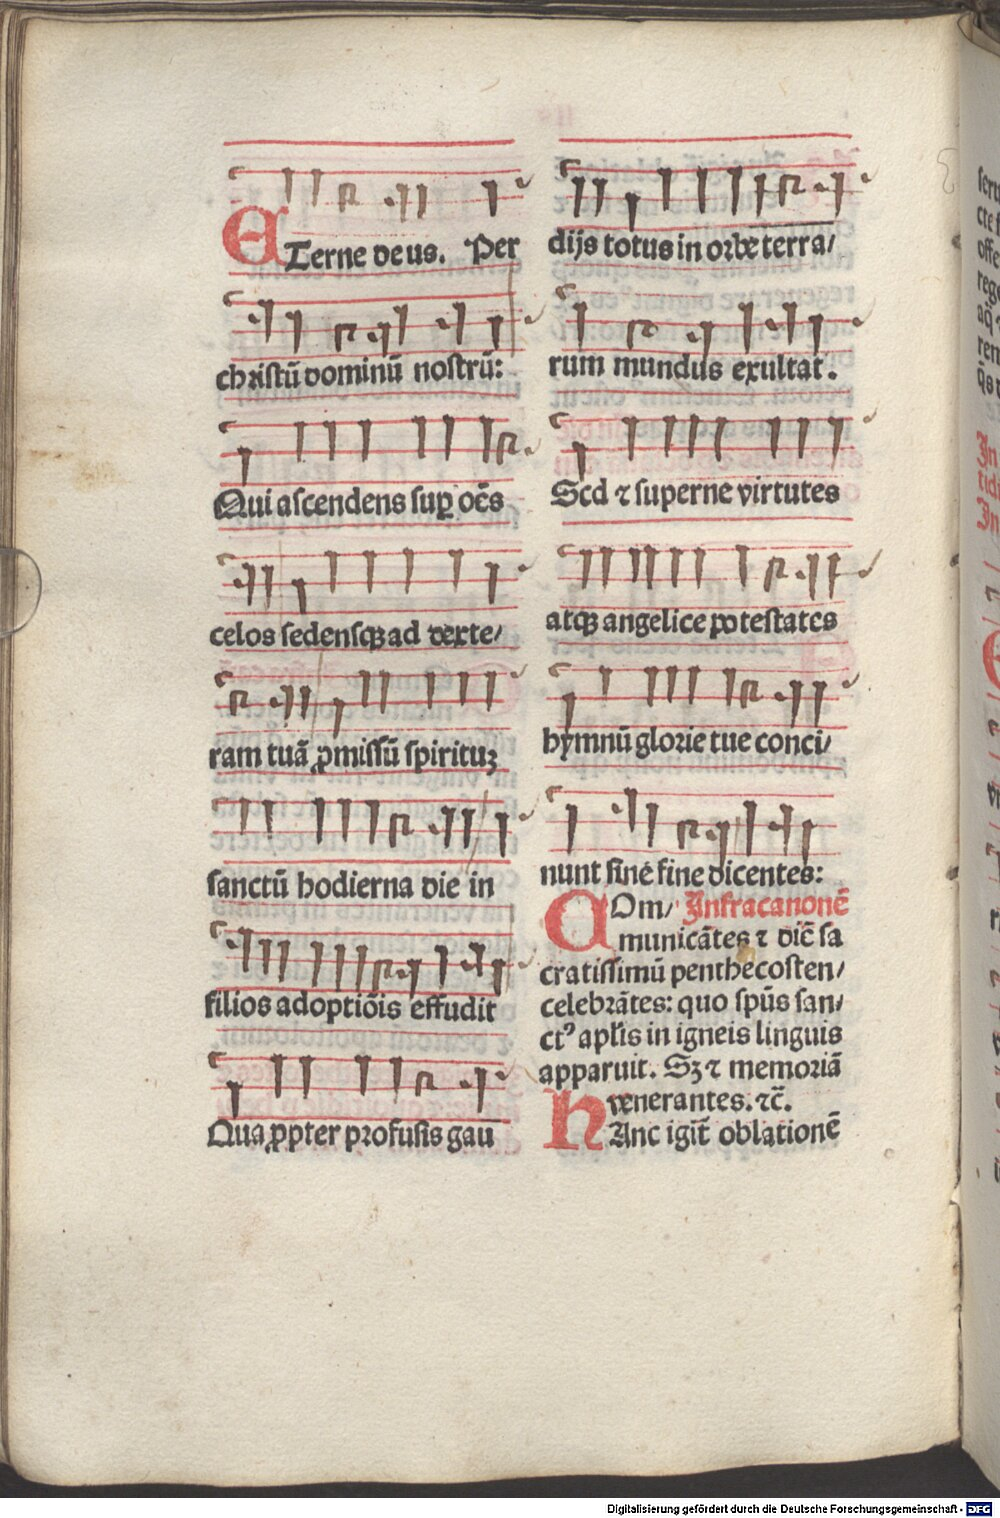 ETerne deus. Per
christū dominū nostrū:
Qui ascendens sup̱ oēs
celos sedensqꝫ ad dexte/
ram tuā ꝓmissū spirituꝫ
sanctū hodierna die in
filios adoptiōis effudit
Quaꝓpter profusis gau
dijs totus in orbe terra/
rum mundus exultat.
Scd ⁊ superne virtutes
atqꝫ angelice potestates
hymnū glorie tue conci/
nunt sine fine dicentes:
COm/ Infracanonē
municātes ⁊ diē sa
cratissimū penthecosten/
celebrātes: quo spūs san/
ctꝰ apl̄is in igneis linguis
apparuit. Sꝫ ⁊ memoriā
venerantes. ⁊c̄.
HAnc igit̄ oblationē
Digitalisierung gefördert durch die Deutsche Forschungsgemeinschaft - DFG